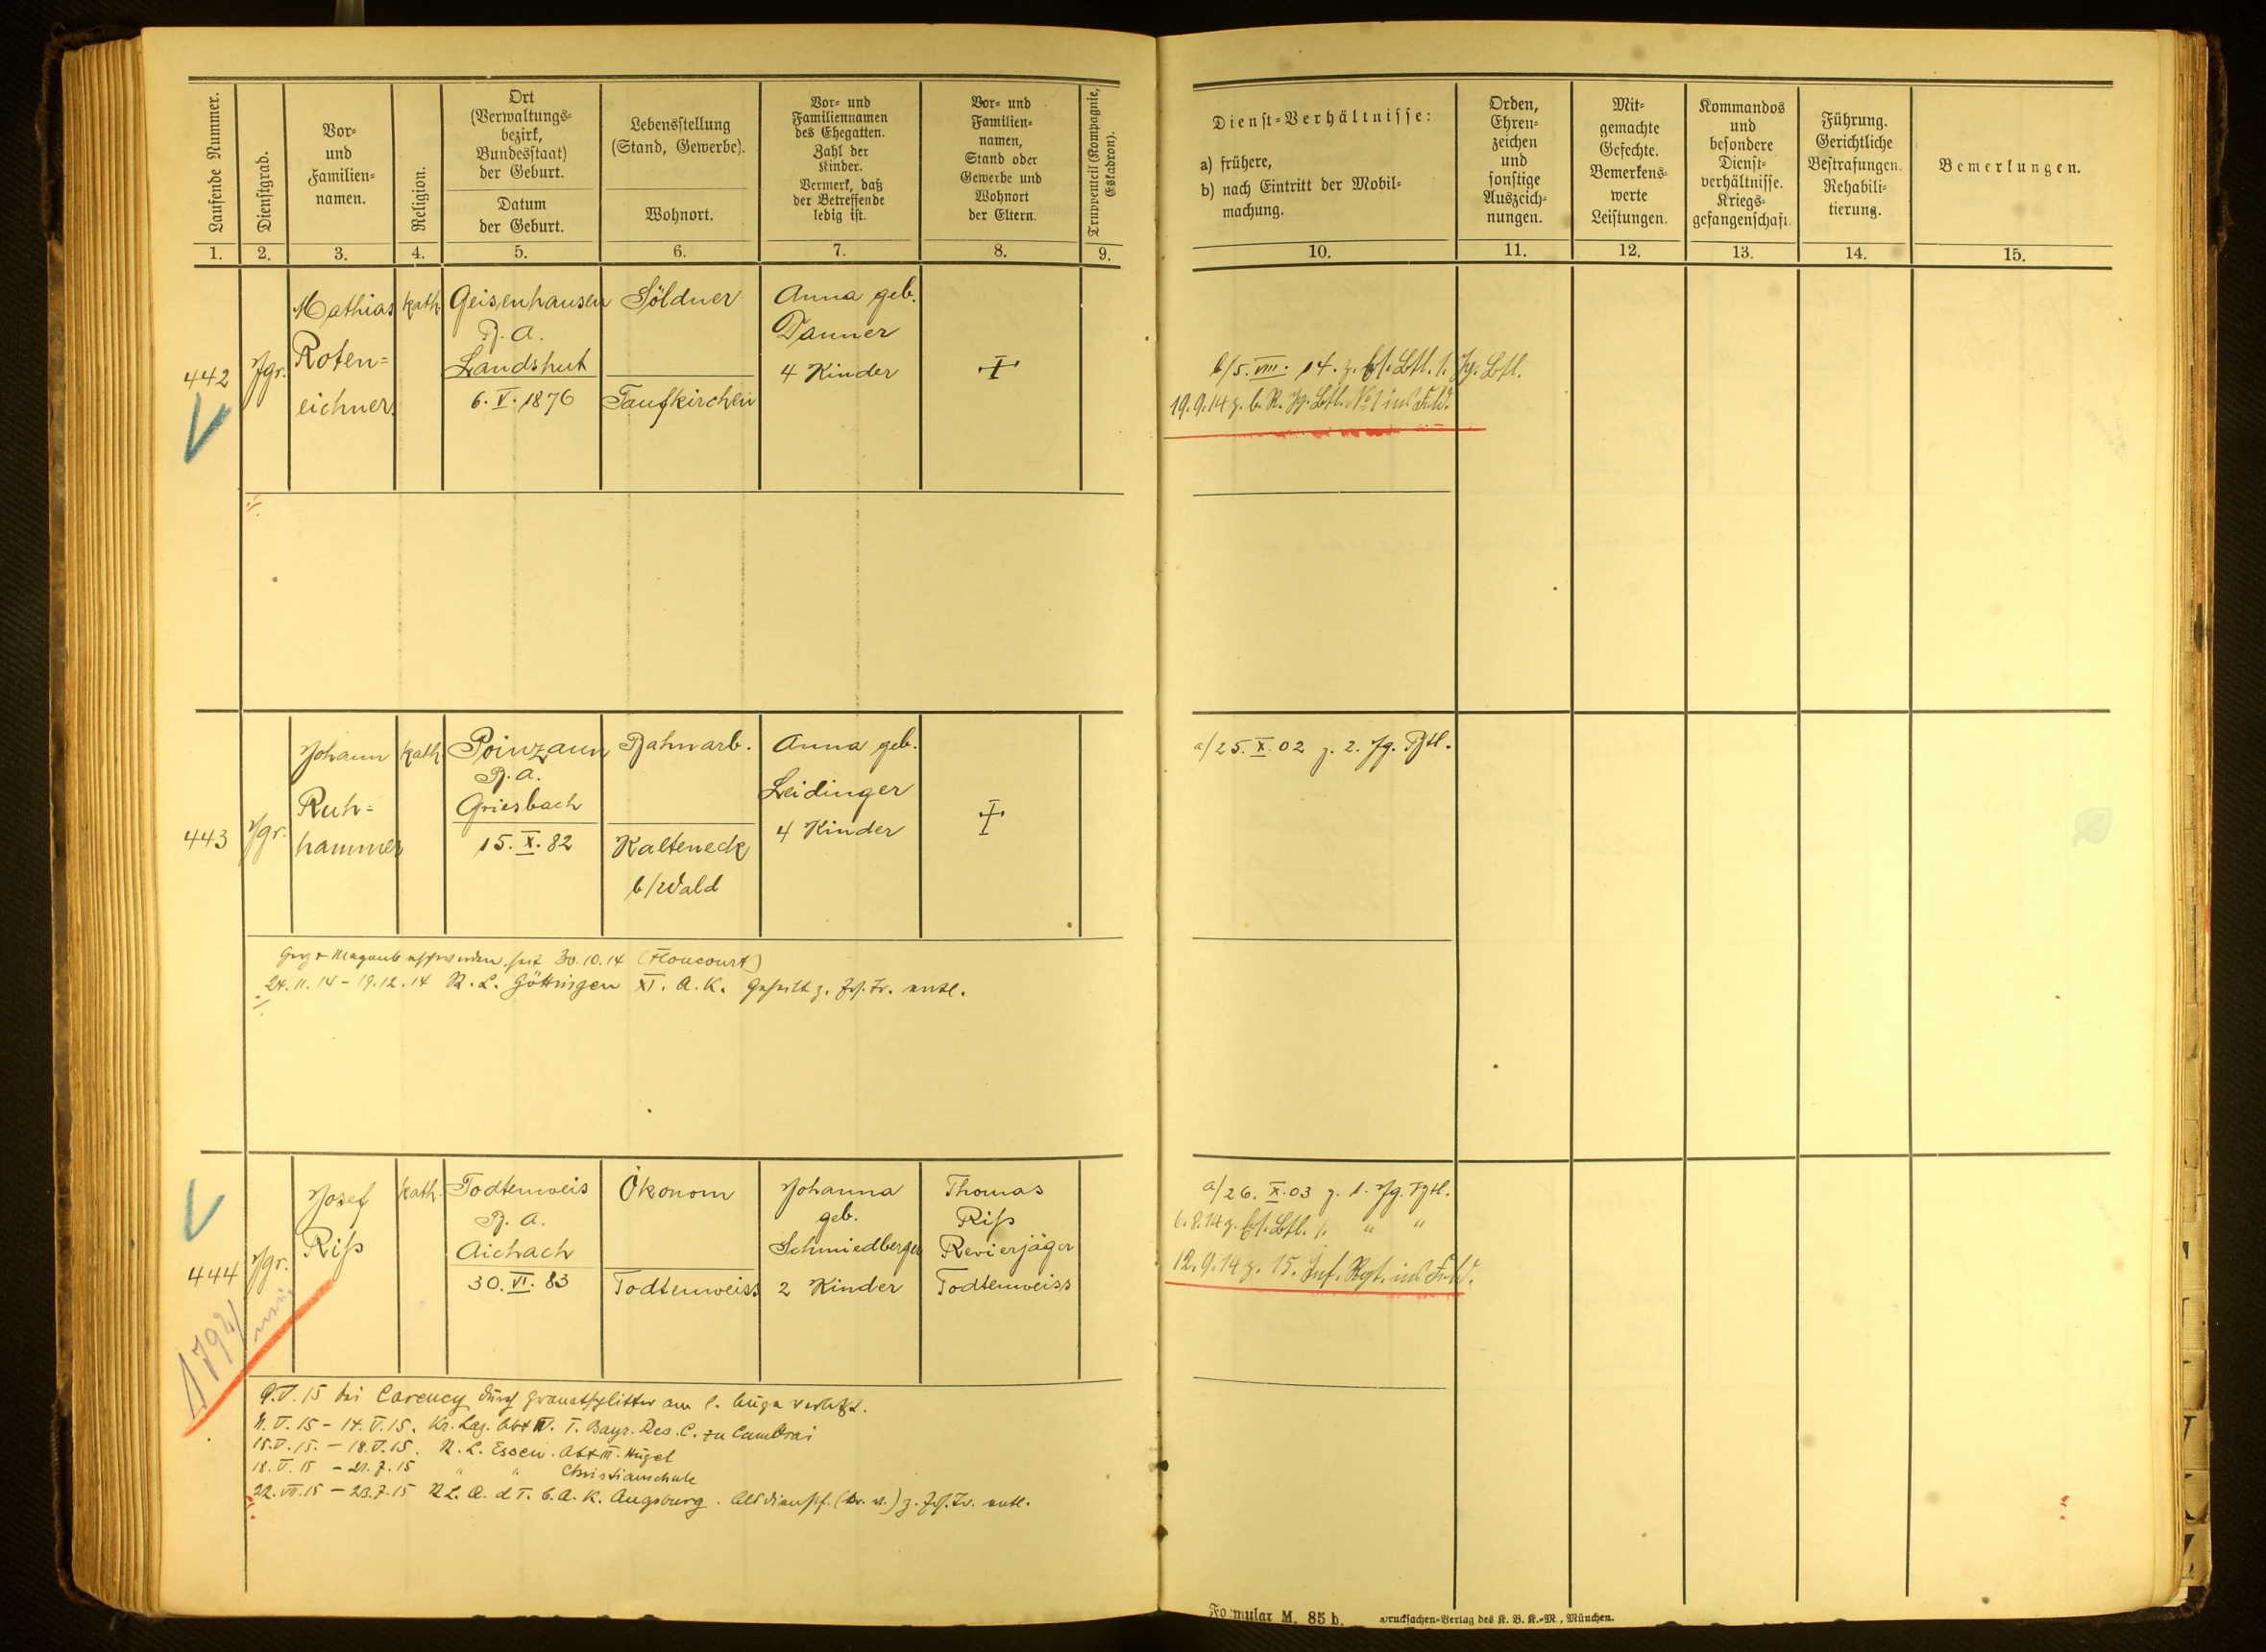 Laufende Nummer.
Dienstgrad.
Vor-
und
Familien-
namen.
Religion.
Ort
(Verwaltungs-
bezirk,
Bundesstaat)
der Geburt.
Datum
der Geburt.
Lebensstellung
(Stand, Gewerbe).
Wohnort.
Vor- und
Familiennamen
des Ehegatten.
Zahl der
Kinder.
Vermerk, daß
der Betreffende
ledig ist.
Vor- und
Familien-
namen,
Stand oder
Gewerbe und
Wohnort
der Eltern.
Truppenteil (Kompagnie,
Eskadron).
Dienst-Verhältnisse:
a) frühere,
b) nach Eintritt der Mobil-
machung.
Orden,
Ehren-
zeichen
und
sonstige
Auszeich-
nungen.
Mit-
gemachte
Gefechte.
Bemerkens-
werte
Leistungen.
Kommandos
und
besondere
Dienst-
verhältnisse.
Kriegs-
gefangenschaft.
Führung.
Gerichtliche
Bestrafungen.
Rehabili-
tierung.
Bemerkungen.
1. 2. 3. 4. 5. 6. 7. 8. 9. 10. 11. 12. 13. 14. 15.
442
Jgr.
Mathias
Roten=
eichner
kath.
Geisenhausen
B. A.
Landshut
6. V. 1876
Söldner
Taufkirchen
Anna geb.
Danner
4 Kinder
b/5. VIII. 14. z. Ers. Btl. 1. Jg. Btl.
19.9.14 z. b. R. Jg. Btl. No 1 ins Feld.
443
Jgr.
Johann
Ruh=
hammer
kath.
Poinzaun
B. A.
Griesbach
15. X. 82
Bahnarb.
Kalteneck
b/Wald
Anna geb.
Leidinger
4 Kinder
a/25. X. 02 z. 2. Jg. Btl.
30.10.14 (Honcourt)
24.11.14 – 19.12.14 R. L. Göttingen XI. A. K. Geheilt z. Ers. Tr. entl.
444
Jgr.
Josef
Riß
kath.
Todtenweis
B. A.
Aichach
30. VI. 83
Ökonom
Todtenweiss
Johanna
geb.
Schmiedberger
2 Kinder
Thomas
Riß
Revierjäger
Todtenweiss
a/26. X. 03 z. 1. Jg. Btl.
6.8.14 z. Ers. Btl. 1. " "
12.9.14 z. 15. Inf. Rgt. ins Feld.
9.V.15 bei Carency durch Granatsplitter am l. Auge verletzt.
11.V.15 – 14.V.15. Kr. Laz. Abt III. I. Bayr. Res. C. zu Cambrai
15.V.15. – 18.V.15. R. L. Essen. Abt III. Hügel
18.V.15 – 21.7.15 " " Christianschule
22.VII.15 – 23.7.15 R L. A. d I. b. A. K. Augsburg. Als dienstf. z. Ers. Tr. entl.
Formular M. 85 b. Drucksachen-Verlag des K. B. K.-M., München.